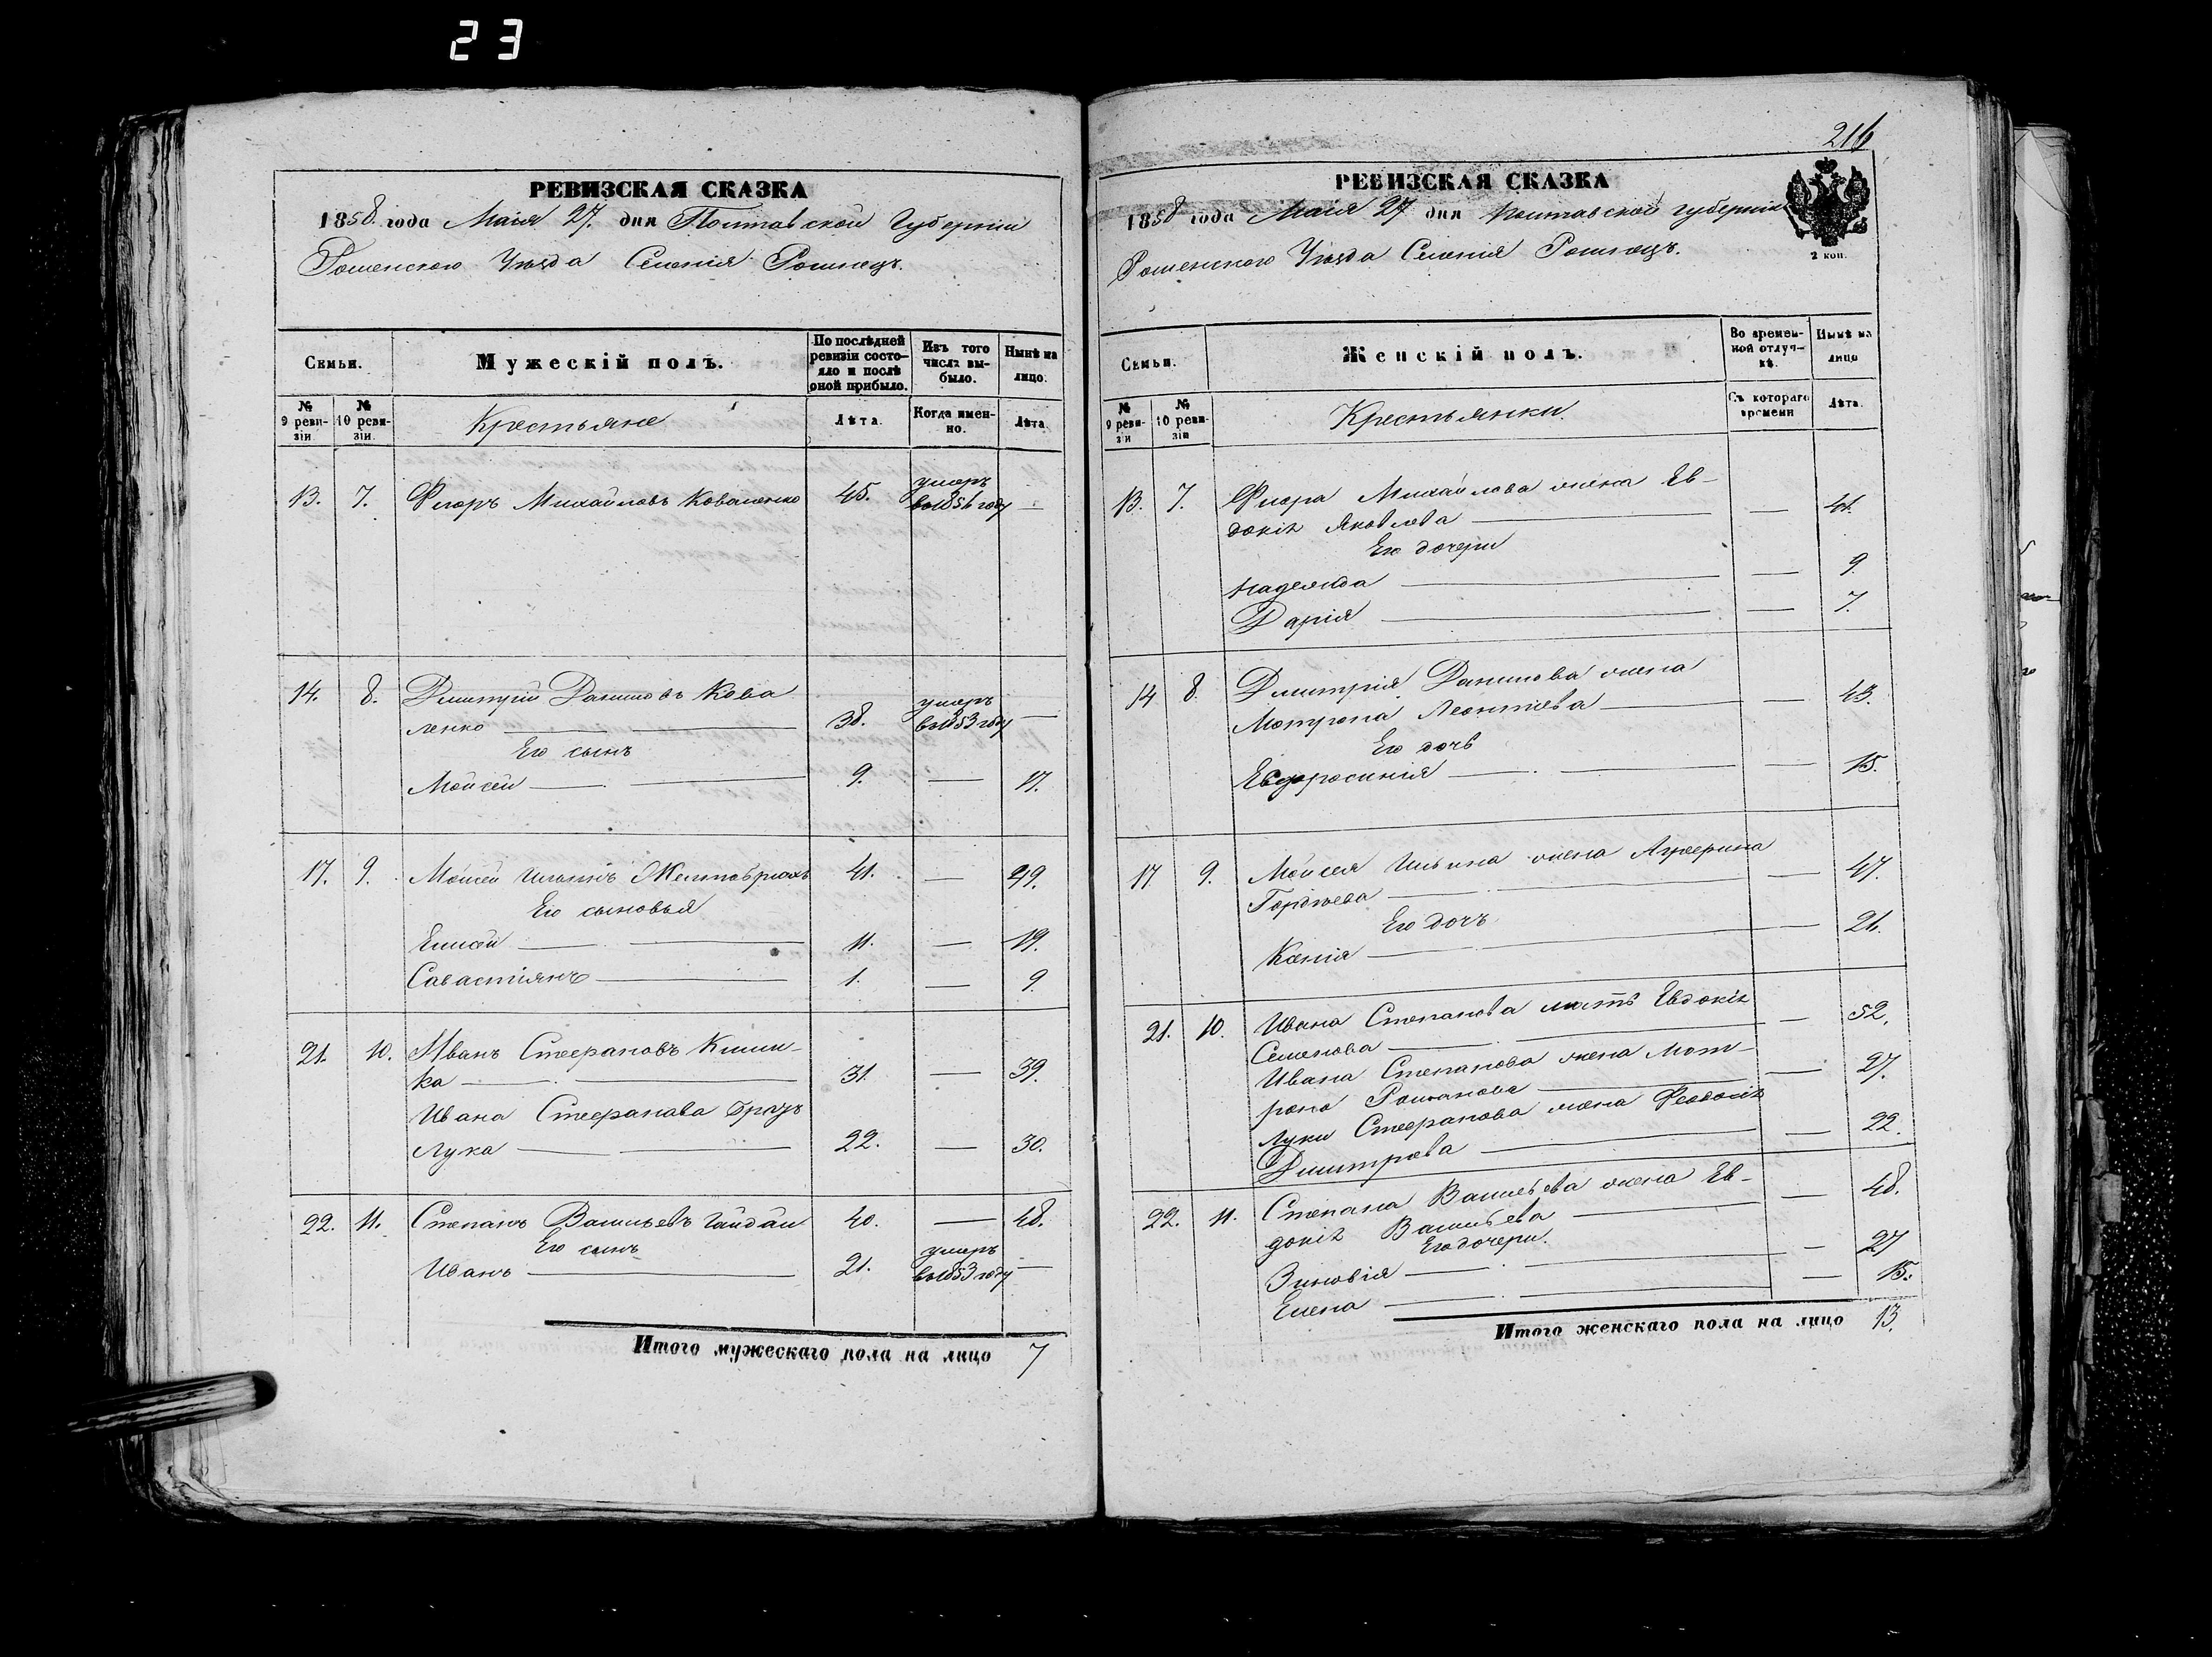 23
РЕВИЗСКАЯ СКАЗКА
1858 года Маія 27. дня Полтавской Губерніи
Роменского Уѣзда Селенія
Семьи.
Мужескій полъ.
По послѣдней ревизіи состояло и послѣ оной прибыло.
Изъ того числа выбыло.
Нынѣ на лицо.
№ 9 ревизіи
№ 10 ревизіи.
Крестьяне
Лѣта.
Когда именно.
Лѣта
13. 7. Флоръ Михайловъ Коваленко 45. умеръ в 1856 году —
14. 8. Дмитрій Даниловъ Кова
ленко — 38. умеръ в 1853 году —
Его сынъ
Мойсей — 9. — 17.
17. 9. Мойсей Ильинъ 41. — 49.
Его сыновья
Елисей — 11. — 19.
Савастіянъ — 1. — 9.
21. 10. Иванъ Стефановъ Кишин-
ка — 31. — 39.
Ивана Стефанова братъ
Лука — 22. — 30.
22. 11. Степанъ Васильевъ Гайдай 40. — 48.
Его сынъ
Иванъ — 21. умеръ в 1853 году —
Итого мужескаго пола на лицо 7
216
РЕВИЗСКАЯ СКАЗКА
1858 года Маія 27 дня Полтавской губерніи
Роменского Уѣзда Селенія
2 коп.
Семьи.
Женскій полъ.
Во временной отлучкѣ.
Нынѣ на лицо
№ 9 ревизіи
№ 10 ревизіи
Крестьянки.
Съ котораго времени
Лѣта.
13. 7. Флора Михайлова жена Ев-
докія Яковлева — — 41.
Его дочери
Надежда — — 9.
Дарія — — 7.
14 8. Дмитрія Данилова жена
Мотрона Леонтіева — — 43.
Его дочь
Евфросинія — — 15.
17 9. Мойсея Ильина жена Агрефина
Гордѣева — — 47.
Его дочь
Ксенія — — 21.
21. 10. Ивана Степанова мать Евдокія
Семенова — — 52.
Ивана Степанова жена Мот-
рона Романова — — 27.
Луки Стефанова жена Феодосія
Дмитрова — — 22.
22. 11. Степана Васильева жена Ев-
докія Васильева — — 48.
Его дочери.
Зиновія — — 27
Елена — — 15.
Итого женскаго пола на лицо 13.